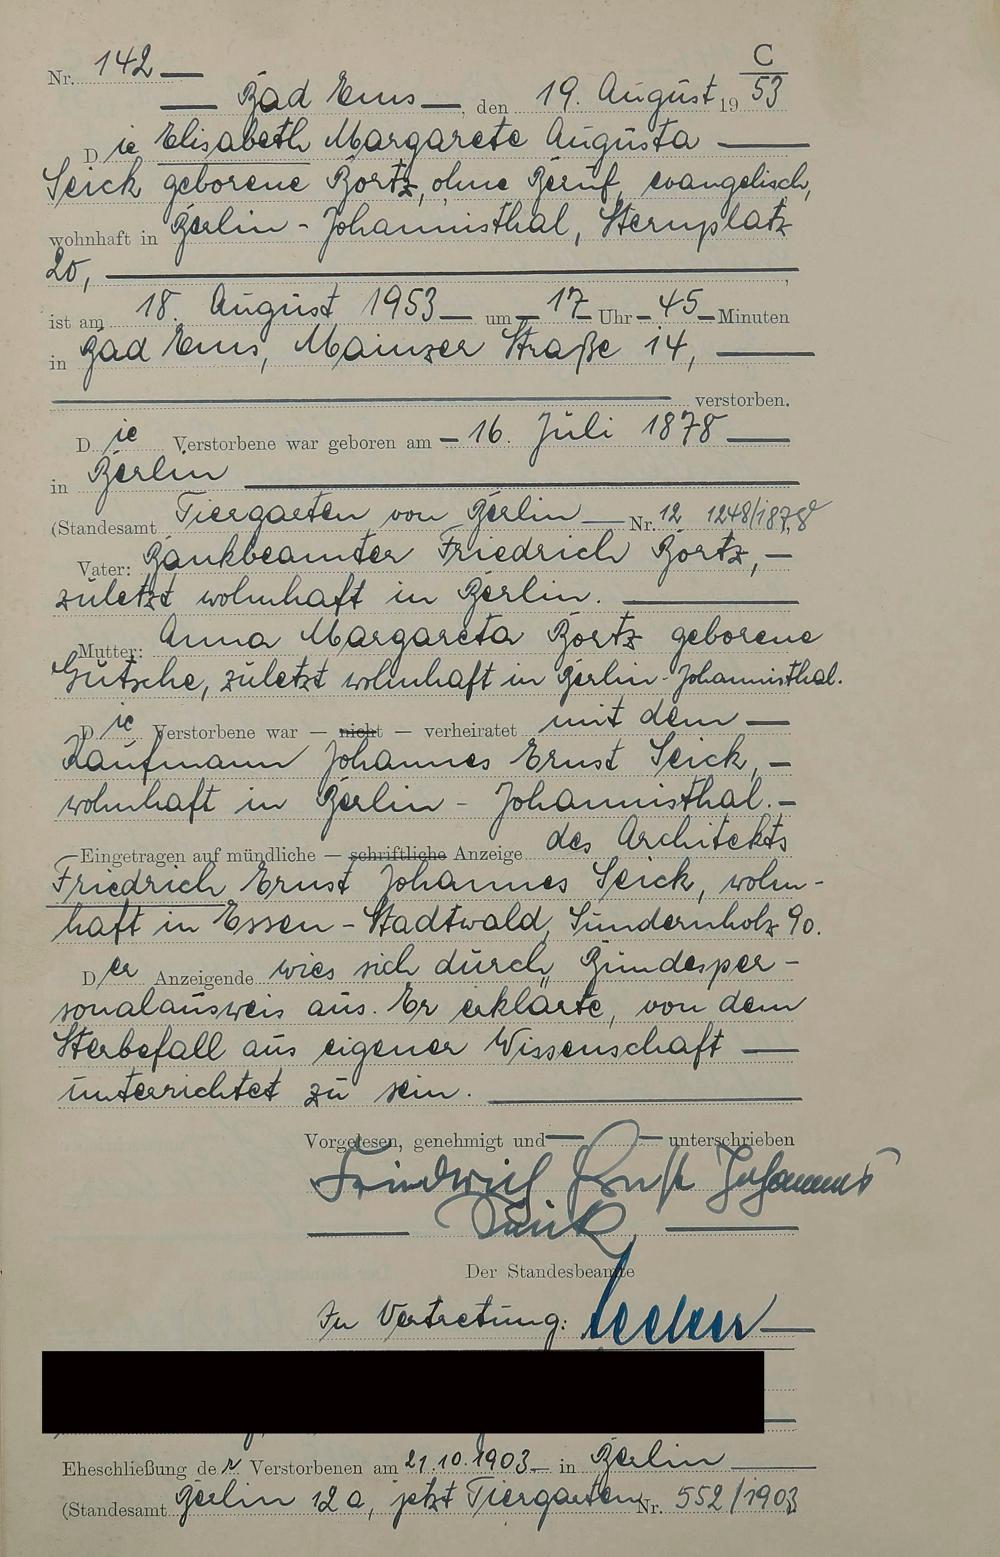 C
Nr. 142
Bad Ems, den 19. August 19 53
Die Elisabeth Margarete Augusta
Seick geborene Bortz, ohne Beruf, evangelisch,
wohnhaft in Berlin - Johannisthal, Sternplatz
20,
ist am 18. August 1953 um 17 Uhr 45 Minuten
in Bad Ems, Mainzer Straße 14,
verstorben.
Die Verstorbene war geboren am 16. Juli 1878
in Berlin
(Standesamt Tiergarten von Berlin Nr. 12 1248/1878
Vater: Bankbeamter Friedrich Bortz,
zuletzt wohnhaft in Berlin.
Mutter: Anna Margareta Bortz geborene
Gutsche, zuletzt wohnhaft in Berlin-Johannisthal.
Die Verstorbene war — nicht — verheiratet mit dem
Kaufmann Johannes Ernst Seick,
wohnhaft in Berlin - Johannisthal.
Eingetragen auf mündliche — schriftliche Anzeige des Architekts
Friedrich Ernst Johannes Seick, wohn-
haft in Essen - Stadtwald, Sundernholz 90.
Der Anzeigende wies sich durch Bundesper-
sonalausweis aus. Er erklärte, von dem
Sterbefall aus eigener Wissenschaft
unterrichtet zu sein.
Vorgelesen, genehmigt und unterschrieben
Friedrich Ernst Johannes
Seick
Der Standesbeamte
In Vertretung:
Eheschließung der Verstorbenen am 21.10.1903 in Berlin
(Standesamt Berlin 12a, jetzt Tiergarten Nr. 552/1903